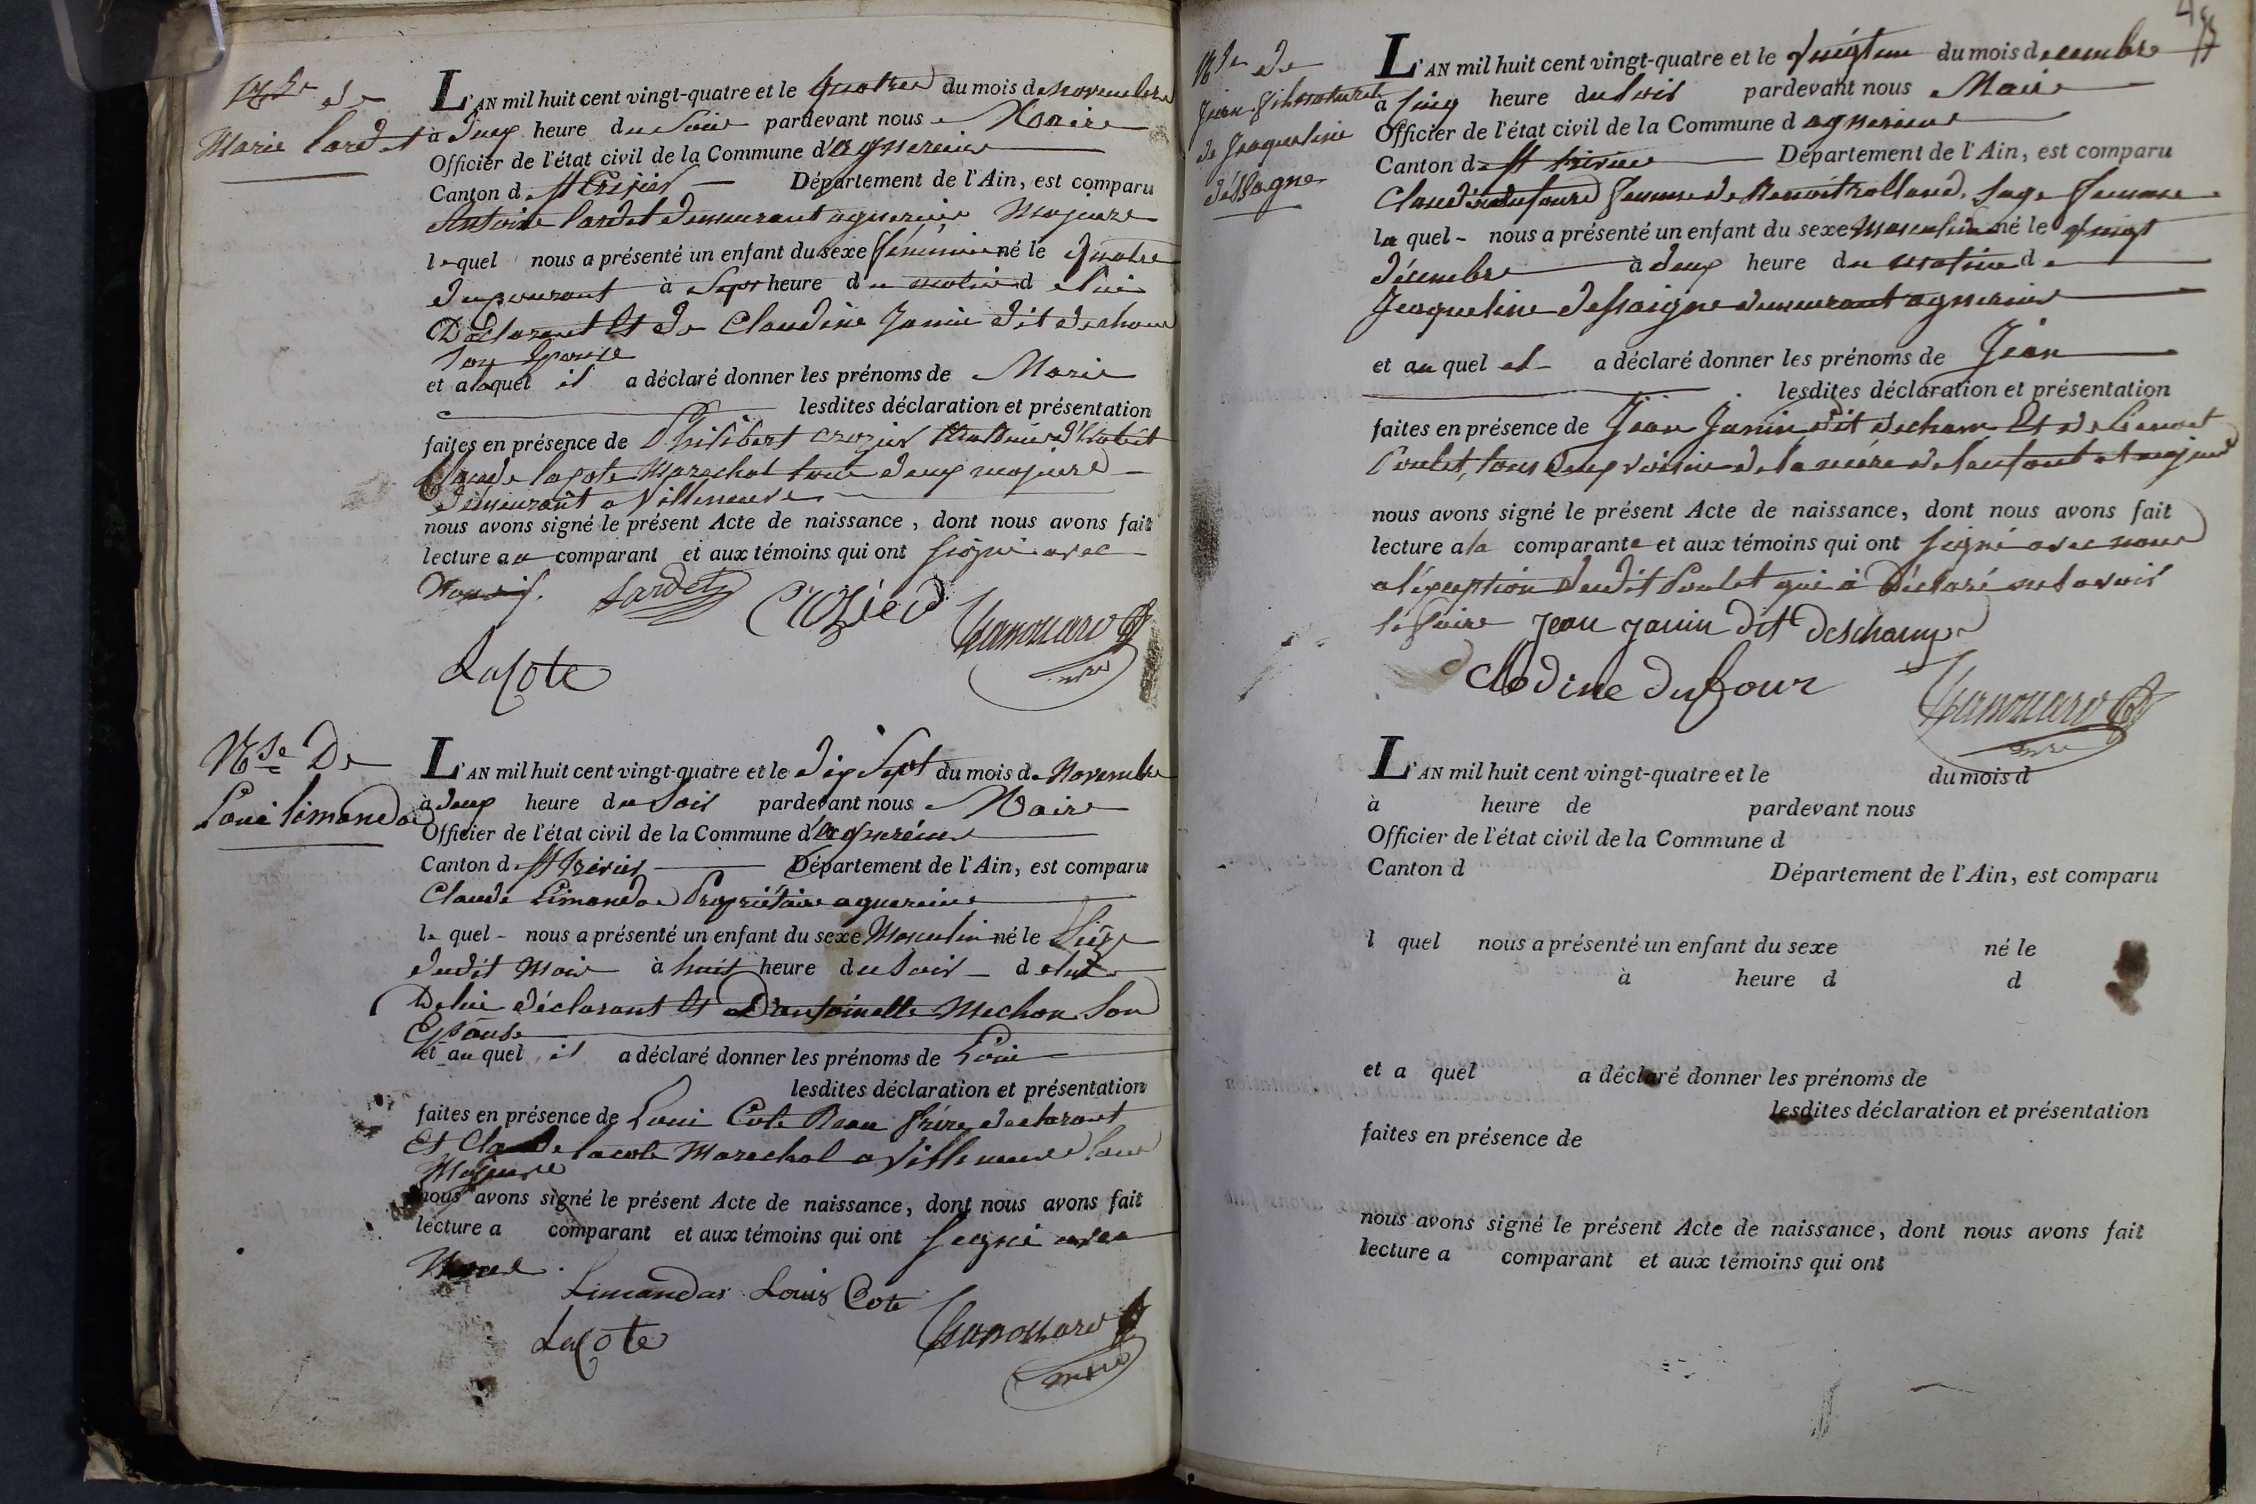 Nse de
Marie lardet
L'AN mil huit cent vingt-quatre et le quatre du mois de novembre
à deux heure du soir pardevant nous Maire
Officier de l'état civil de la Commune d'agnereins
Canton de St Trivier Département de l'Ain, est comparu
Antoine lardet demeurant agnereins Majeure
lequel nous a présenté un enfant du sexe féminin né le quatre
du courant à Sept heure du matin de lui
Déclarant Et de Claudine Janin dit descham
son Epouse
et auquel il a déclaré donner les prénoms de Marie
lesdites déclaration et présentation
faites en présence de Philibert crozier
Claude lacote Marechal tout deux majeure
demeurant a Villeneuve
nous avons signé le présent Acte de naissance, dont nous avons fait
lecture au comparant et aux témoins qui ont signé avec
Nous
Lardet Crozier
Lacote
Nse De
Loui limandas
L'AN mil huit cent vingt-quatre et le dix Sept du mois de Novembre
à deux heure du soir pardevant nous Maire
Officier de l'état civil de la Commune d'agnereins
Canton de St Trivier Département de l'Ain, est comparu
Claude Limandas Propriétaire agnereins
le quel nous a présenté un enfant du sexe Masculin né le Sieze
dudit Mois à huit heure du soir de
De lui déclarant Et D'antoinette Mechon Son
Epouse
et au quel il a déclaré donner les prénoms de Loui
lesdites déclaration et présentation
faites en présence de Loui Cote Beau frère declarant
Et Claude lacote Marechal a Villeneuve tous
Majeure
nous avons signé le présent Acte de naissance, dont nous avons fait
lecture a comparant et aux témoins qui ont signé avec
Nous.
Limandas Louis Cote
Lacote
Nse de
Jean fils naturel
de Jacqueline
déssagne
L'AN mil huit cent vingt-quatre et le vingtun du mois decembre
à cinq heure du soir pardevant nous Maire
Officier de l'état civil de la Commune d agnereins
Canton de St trivier Département de l'Ain, est comparu
Claudine dufour femme de Benoit rolland, Sage femme
la quel nous a présenté un enfant du sexe Masculin né le vingt
décembre à deux heure du matin de
Jacqueline dessaigne demeurant agnereins
et au quel el a déclaré donner les prénoms de Jean
lesdites déclaration et présentation
faites en présence de Jean Janin dit descham Et de Benoit
Poulet, tous deux voisin de la mére de l'enfant et majeur
nous avons signé le présent Acte de naissance, dont nous avons fait
lecture a la comparante et aux témoins qui ont signé avec nous
a l'éxception dudit Poulet qui à déclaré ne savoir
le faire jean janin dit deschamp
Clodine dufour
L'AN mil huit cent vingt-quatre et le du mois d
à heure de pardevant nous
Officier de l'état civil de la Commune d
Canton d Département de l'Ain, est comparu
l quel nous a présenté un enfant du sexe né le
à heure d d
et a quel a déclaré donner les prénoms de
lesdites déclaration et présentation
faites en présence de
nous avons signé le présent Acte de naissance, dont nous avons fait
lecture a comparant et aux témoins qui ont